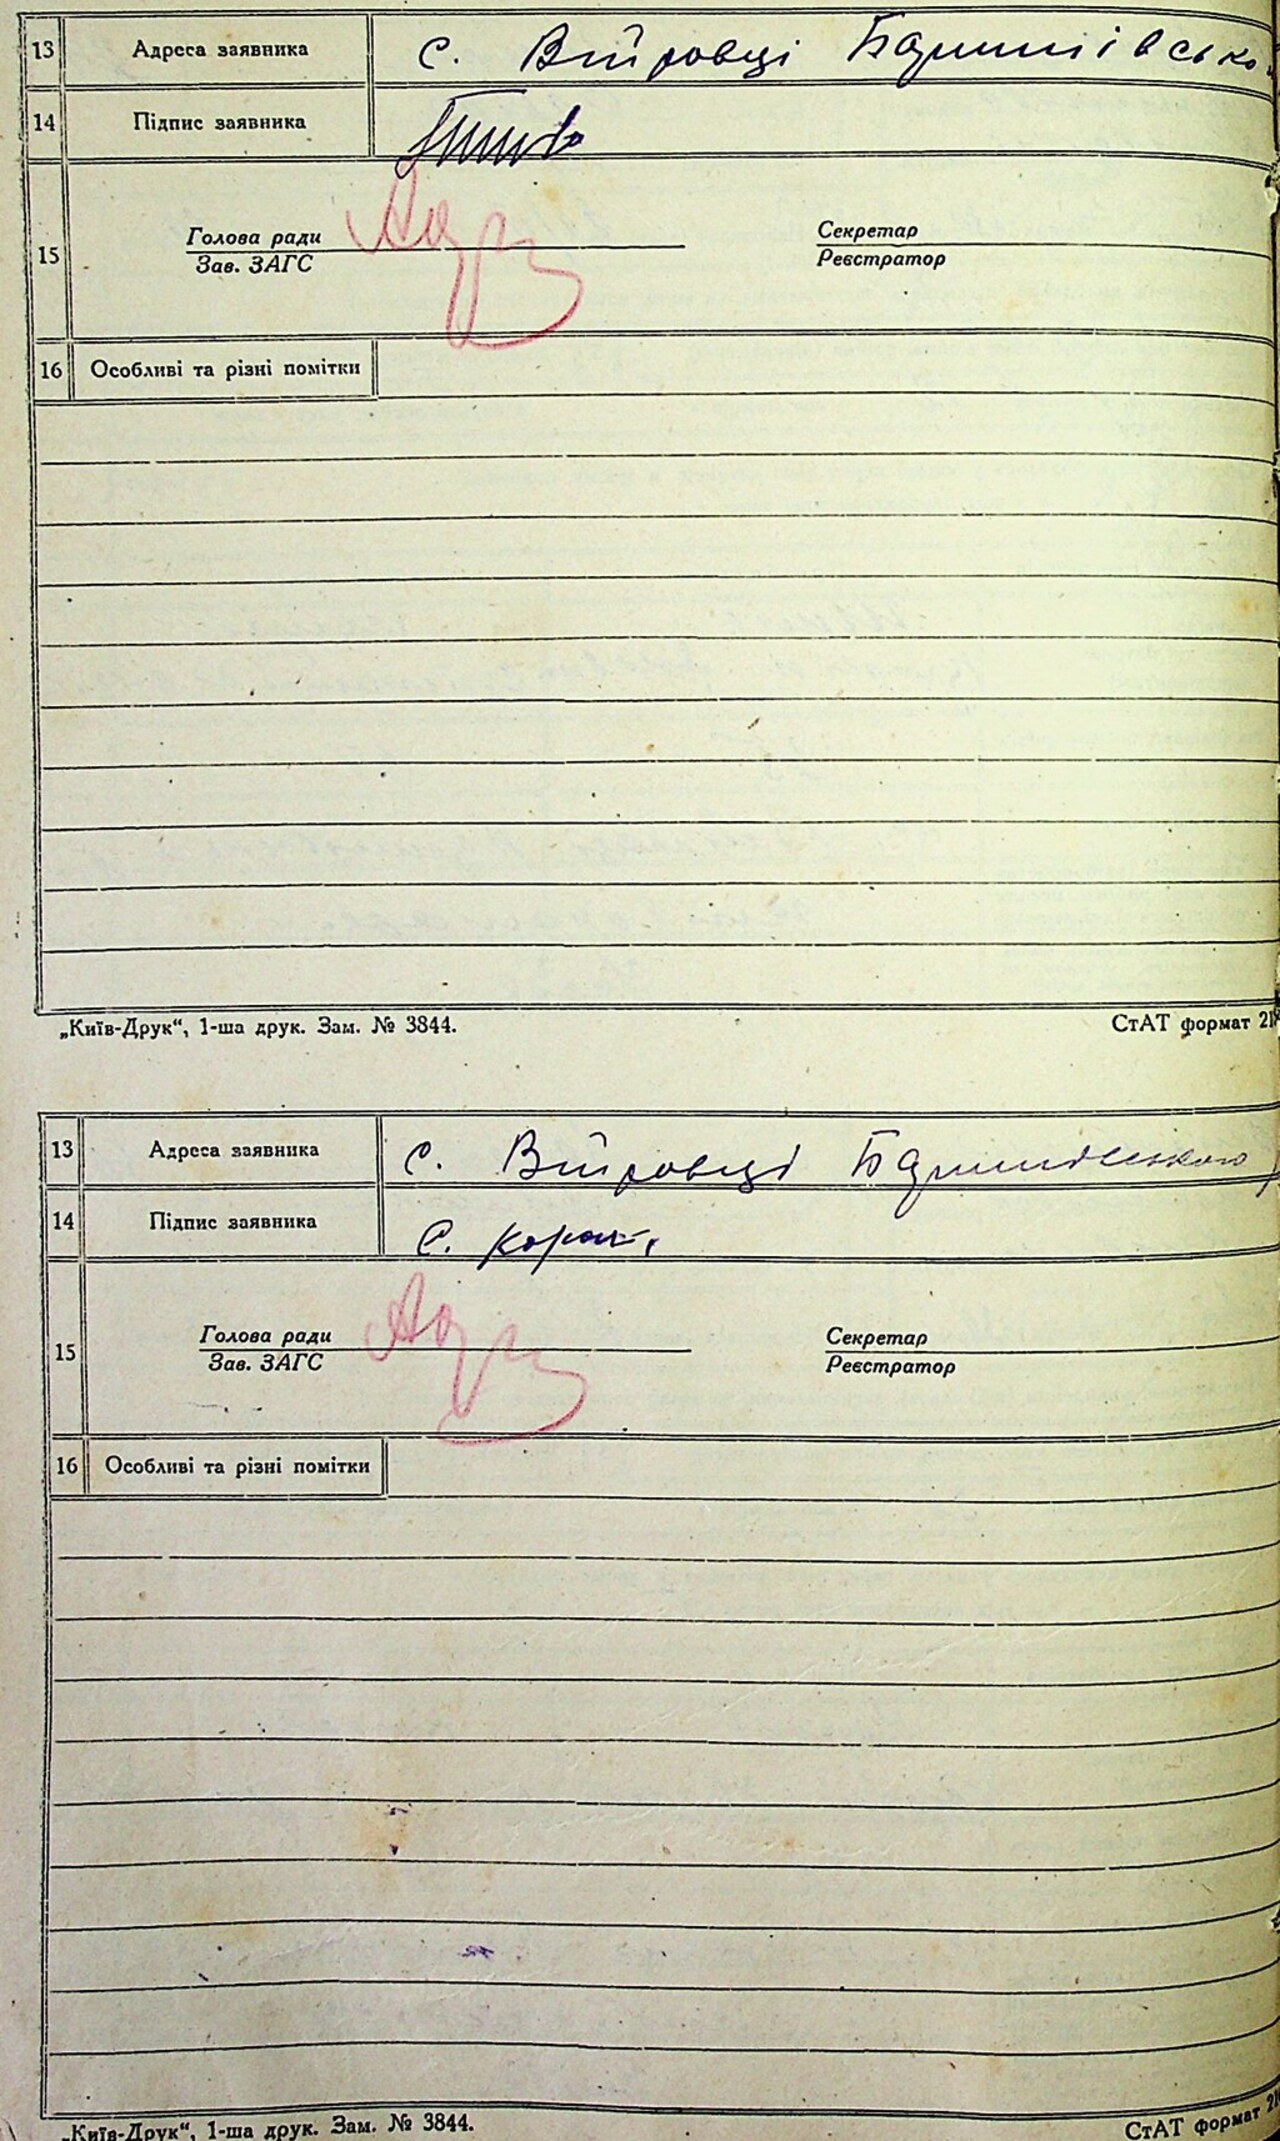 13 Адреса заявника с. Війтовці
14 Підпис заявника
15 Голова ради Секретар
Зав. ЗАГС Реєстратор
16 Особливі та різні помітки
„Київ-Друк“, 1-ша друк. Зам. № 3844. СтАТ формат
13 Адреса заявника с. Війтовці
14 Підпис заявника С.
15 Голова ради Секретар
Зав. ЗАГС Реєстратор
16 Особливі та різні помітки
„Київ-Друк“, 1-ша друк. Зам. № 3844. СтАТ формат